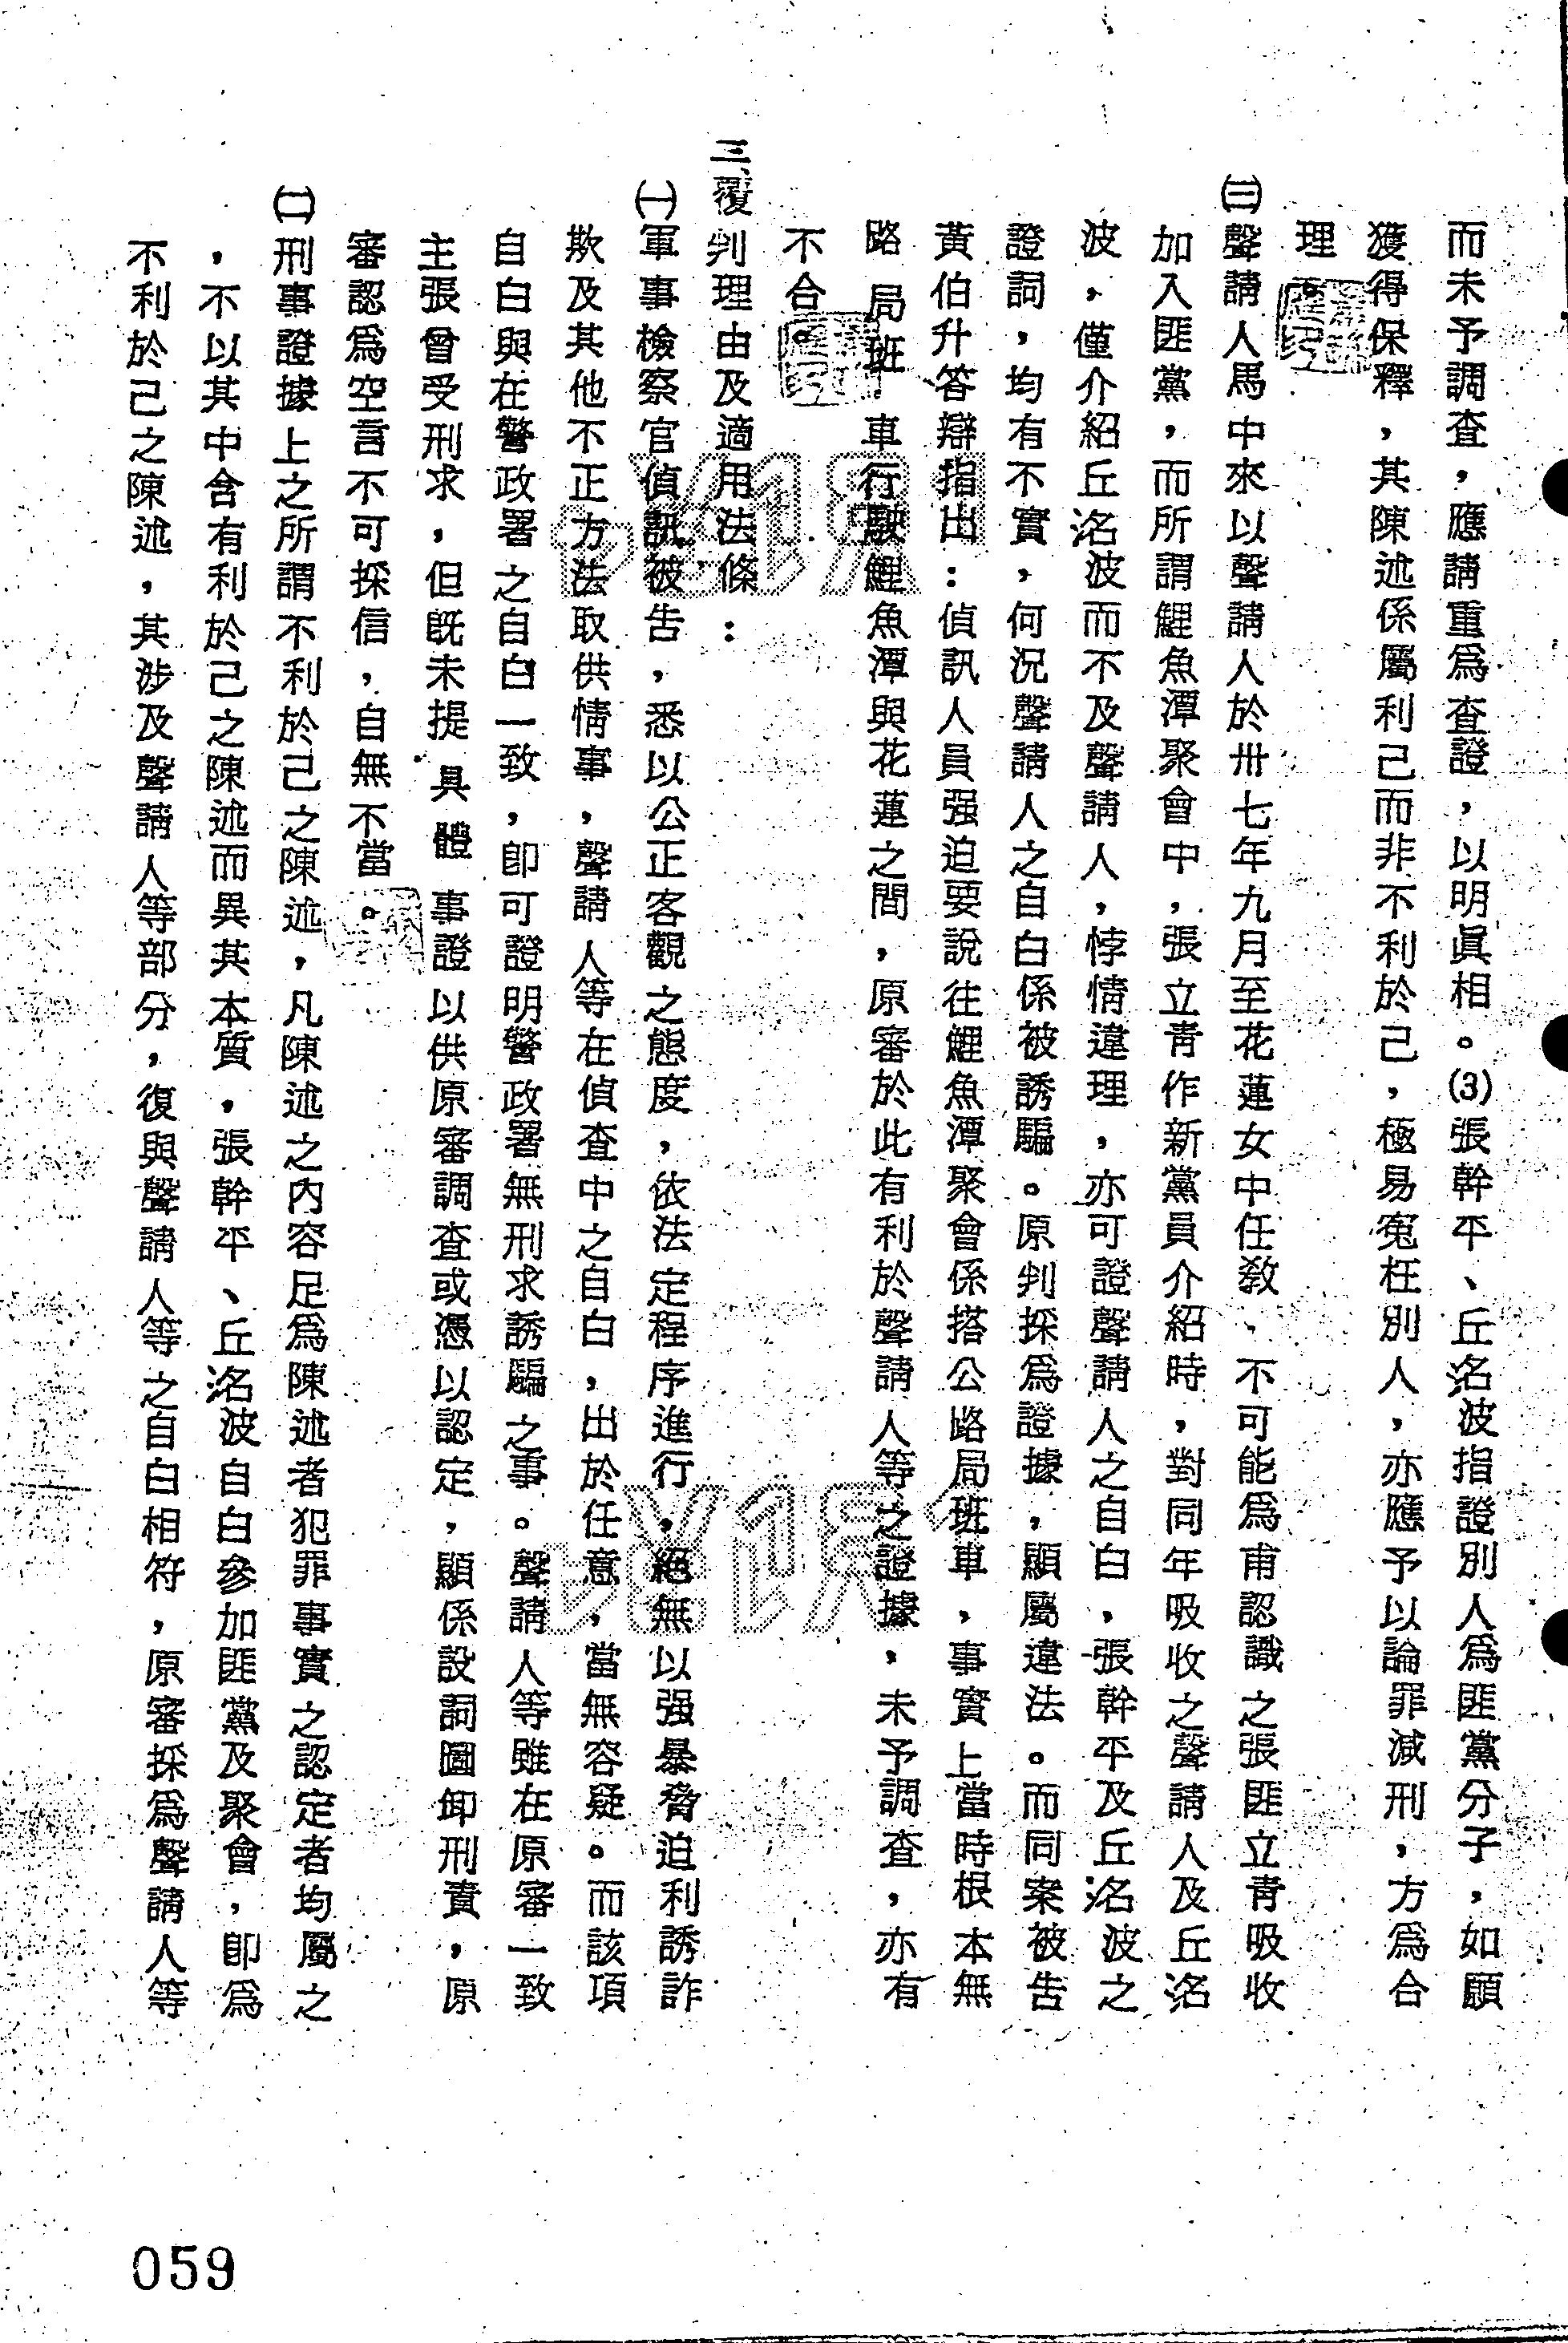 而未予調查，應請重爲查證，以明眞相。(3)張幹平、丘洺波指證別人爲匪黨分子，如願
獲得保釋，其陳述係屬利己而非不利於己，極易寃枉別人，亦應予以論罪減刑，方爲合
理。
㈢聲請人馬中來以聲請人於卅七年九月至花蓮女中任敎，不可能爲甫認識之張匪立青吸收
加入匪黨，而所謂鯉魚潭聚會中，張立青作新黨員介紹時，對同年吸收之聲請人及丘洺
波，僅介紹丘洺波而不及聲請人，悖情違理，亦可證聲請人之自白，張幹平及丘洺波之
證詞，均有不實，何況聲請人之自白係被誘騙。原判採爲證據，顯屬違法。而同案被告
黃伯升答辯指出：偵訊人員强迫要說往鯉魚潭聚會係搭公路局班車，事實上當時根本無
路局班車行駛鯉魚潭與花蓮之間，原審於此有利於聲請人等之證據，未予調查，亦有
不合。
三、覆判理由及適用法條：
㈠軍事檢察官偵訊被告，悉以公正客觀之態度，依法定程序進行，絕無以强暴脅迫利誘詐
欺及其他不正方法取供情事，聲請人等在偵查中之自白，出於任意，當無容疑。而該項
自白與在警政署之自白一致，卽可證明警政署無刑求誘騙之事。聲請人等雖在原審一致
主張曾受刑求，但旣未提具體事證以供原審調查或憑以認定，顯係設詞圖卸刑責，原
審認爲空言不可採信，自無不當。
㈡刑事證據上之所謂不利於己之陳述，凡陳述之內容足爲陳述者犯罪事實之認定者均屬之
，不以其中含有利於己之陳述而異其本質，張幹平、丘洺波自白參加匪黨及聚會，卽爲
不利於己之陳述，其涉及聲請人等部分，復與聲請人等之自白相符，原審採爲聲請人等
059